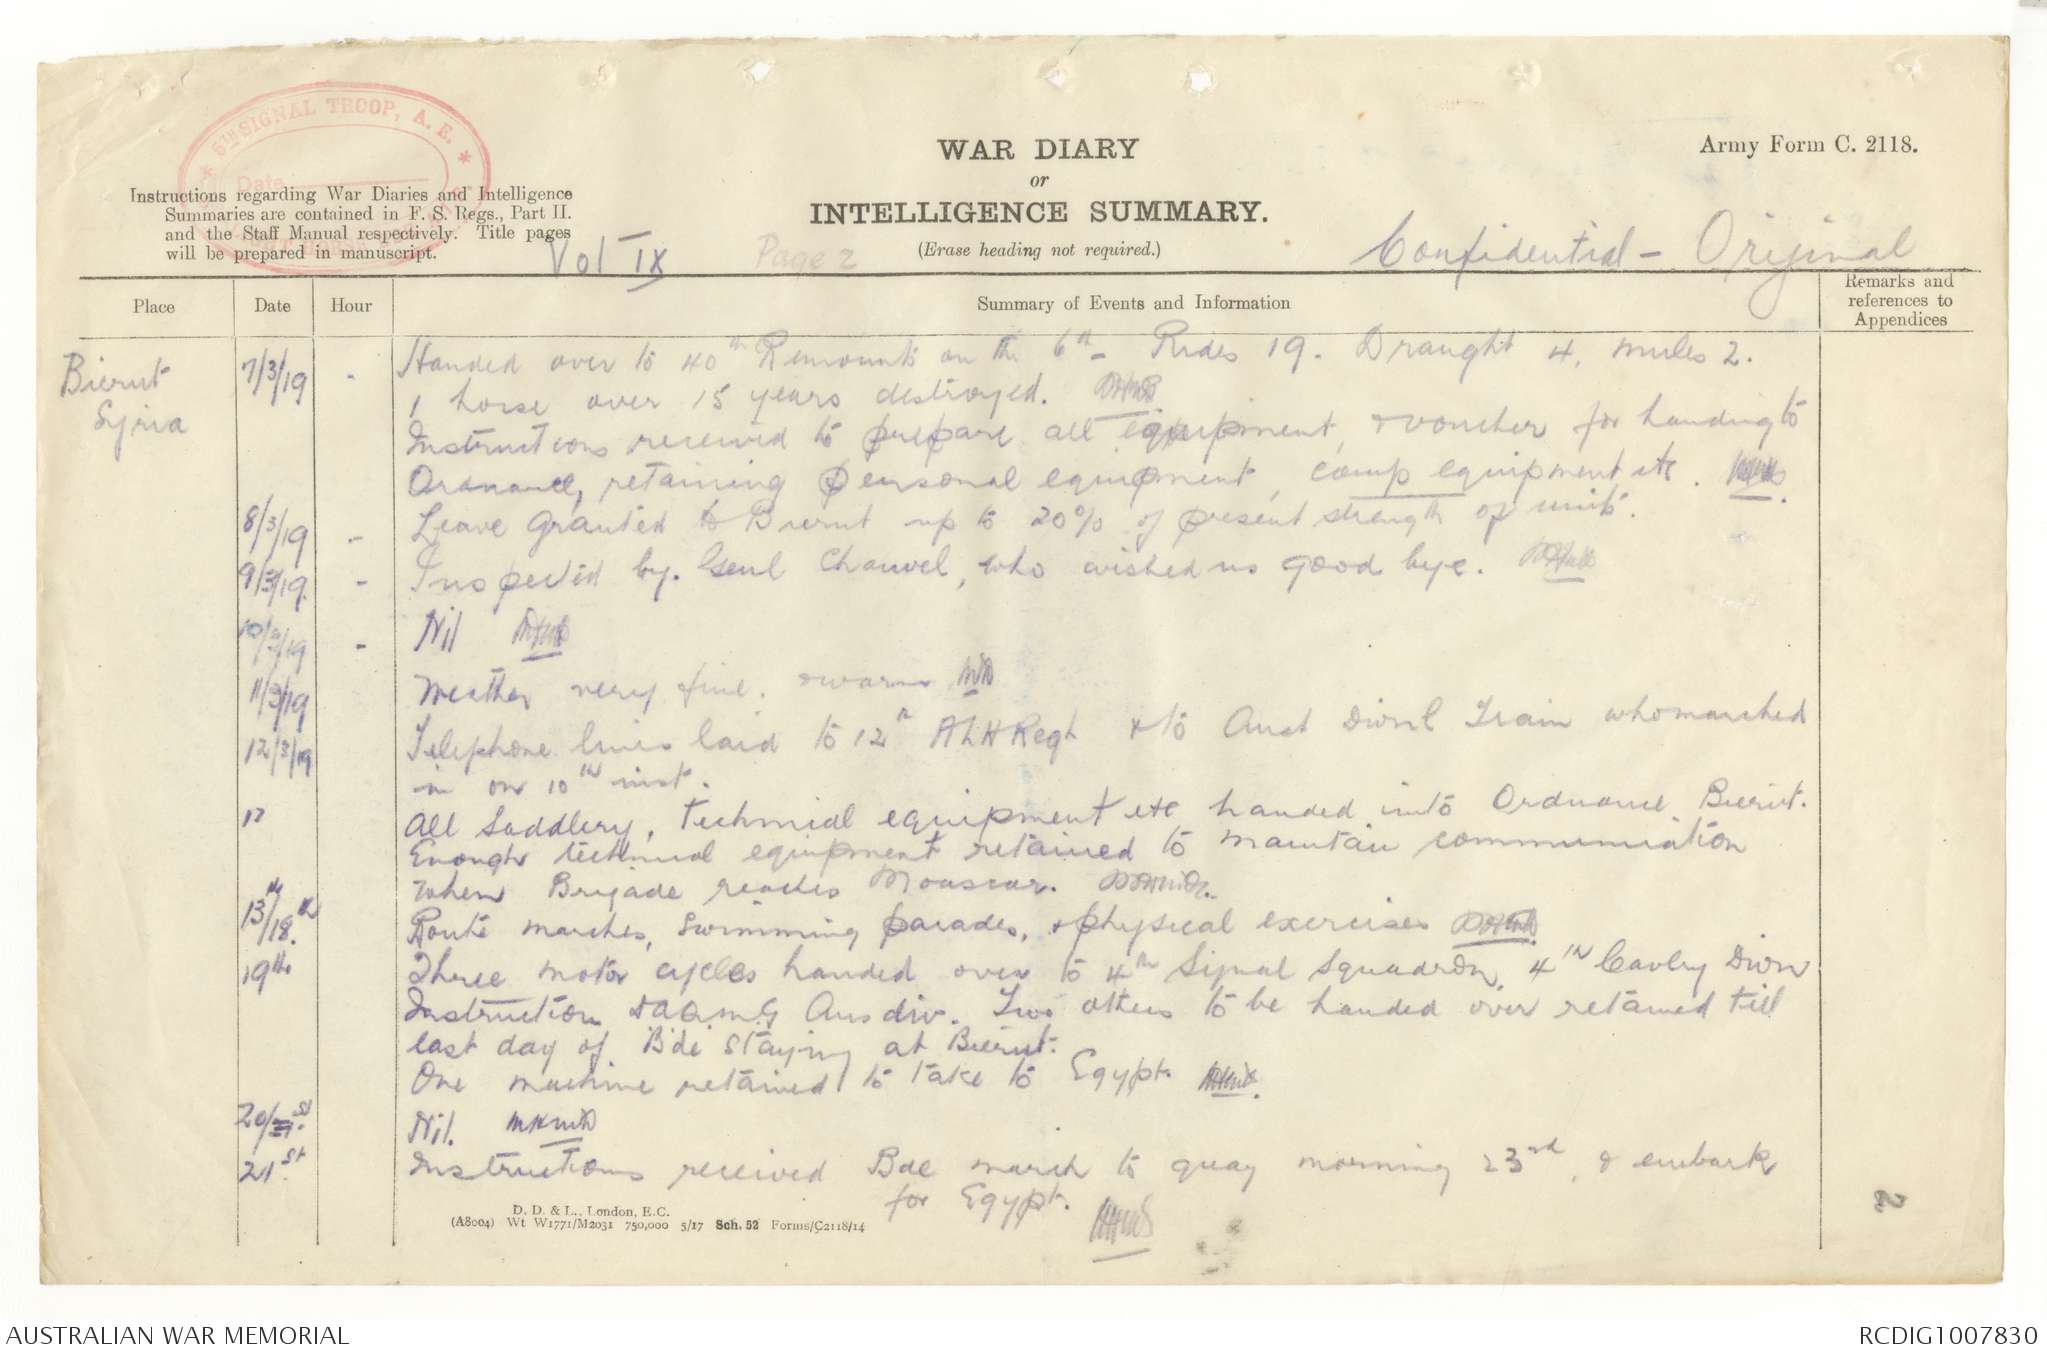 5TH SIGNAL TROOP, A. E.
Date
WAR DIARY
or
INTELLIGENCE SUMMARY.
(Erase heading not required.)
Army Form C. 2118.
Instructions regarding War Diaries and Intelligence
Summaries are contained in F. S. Regs., Part II.
and the Staff Manual respectively. Title pages
will be prepared in manuscript.
Vol IX
Page 2
Confidential - Original
Place
Date
Hour
Summary of Events and Information
Remarks and
references to
Appendices
Bierut
Syria
7/3/19 - Handed over to 40th Remounts on the 6th - Rides 19. Draught 4, mules 2.
1 horse over 15 years destroyed.
Instructions received to prepare all equipment, & voucher for handing to
Ordnance, retaining personal equipment, camp equipment etc.
8/3/19 - Leave granted to Bierut up to 20% of present strength of unit.
9/3/19 - Inspected by Genl Chauvel, who wished us good bye.
10/3/19 - Nil
11/3/19 Weather very fine. & warm
12/3/19 Telephone lines laid to 12th ALH Regt & to Aust Divnl Train who marched
in on 10th inst.
12 All Saddlery, technical equipment etc handed into Ordnance Bierut.
Enough technical equipment retained to maintain communication
when Brigade reaches Moascar.
13th/18th Route marches, swimming parades, & physical exercises
19th Three motor cycles handed over to 4th Signal Squadron, 4th Cavlry Divn
Instruction DAQMG Ausdiv. Two others to be handed over retained till
last day of Bde staying at Bierut.
One machine retained to take to Egypt.
20/ st Nil.
21st Instructions received Bde march to quay morning 23rd, & embark
for Egypt.
D. D. & L., London, E.C.
(A8004) Wt W1771/M2031 750,000 5/17 Sch. 52 Forms/C2118/14
2
AUSTRALIAN WAR MEMORIAL
RCDIG1007830